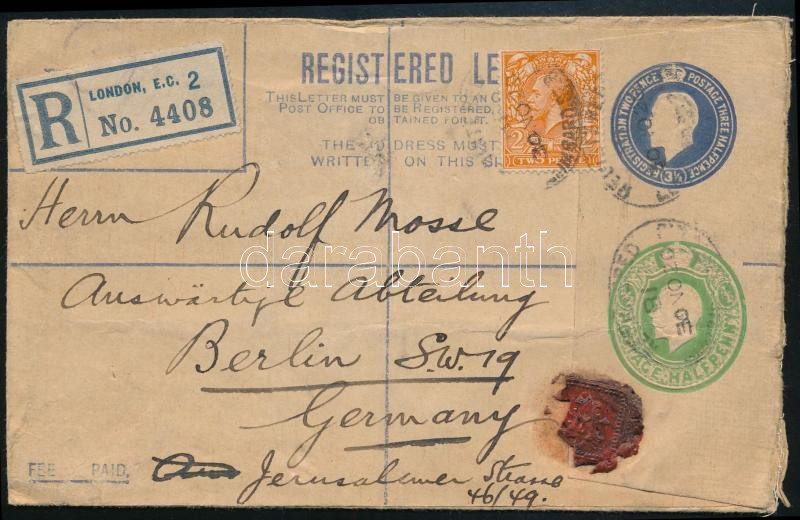 REGISTERED LE
THIS LETTER MUST BE GIVEN TO AN
POST OFFICE TO BE REGISTERED,
OBTAINED FOR IT.
THE ADDRESS MUST
WRITTEN ON THIS
R
LONDON, E.C. 2
No. 4408
TWO PENCE
REGISTRATION TWO PENCE POSTAGE THREE HALFPENCE
3½
POSTAGE HALFPENNY
Herrn Rudolf Mosse
Auswärtige Abteilung
Berlin S.W. 19
Germany
Jerusalemer Strasse
46/49.
FEE PAID.
darabanth